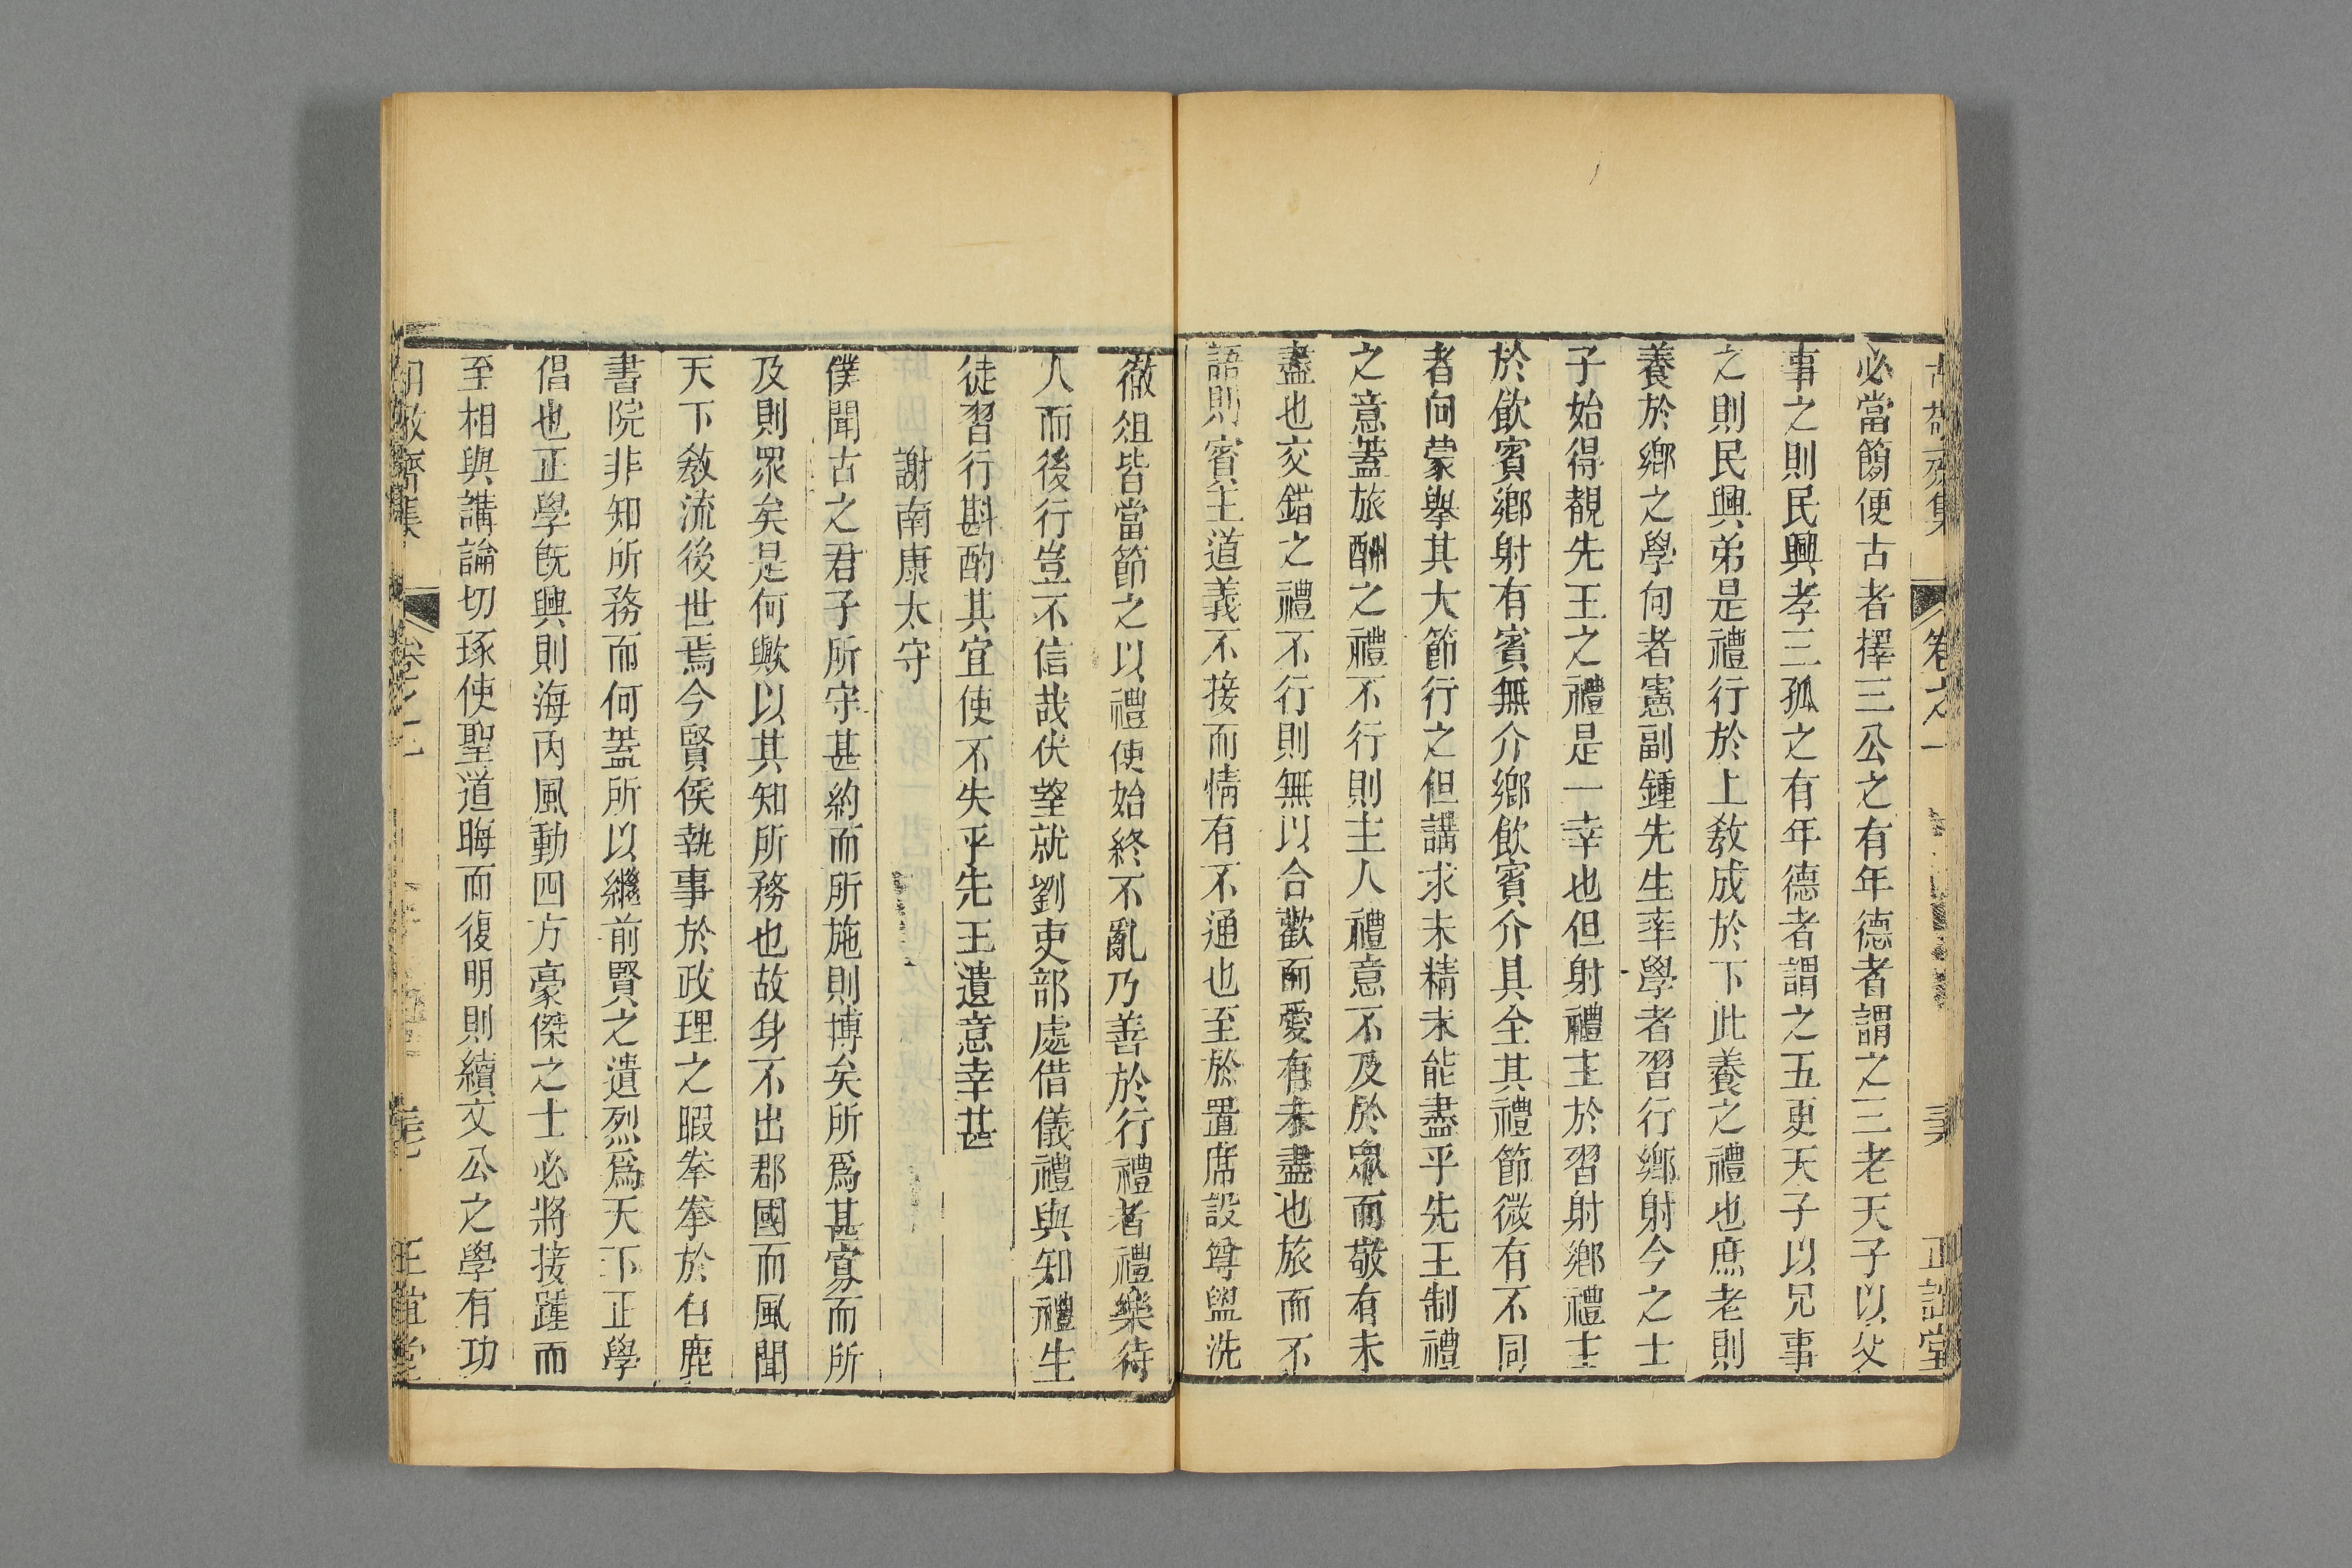 必當簡便古者擇三公之有年德者謂之三老天子以父
事之則民興孝三孤之有年德者謂之五更天子以兄事
之則民興弟是禮行於上敎成於下此養之禮也庶老則
養於鄉之學向者憲副鍾先生率學者習行鄉射今之士
子始得覩先王之禮是一幸也但射禮主於習射鄉禮主
於飲賓鄉射有賓無介鄉飲賓介具全其禮節微有不同
者向蒙舉其大節行之但講求未精未能盡乎先王制禮
之意蓋旅酬之禮不行則主人禮意不及於衆而敬有未
盡也交錯之禮不行則無以合歡而愛有未盡也旅而不
語則賓主道義不接而情有不通也至於置席設尊盥洗
徹俎皆當節之以禮使始終不亂乃善於行禮者禮樂待
人而後行豈不信哉伏望就劉吏部處借儀禮與知禮生
徒習行斟酌其宜使不失乎先王遺意幸甚
謝南康太守
僕聞古之君子所守甚約而所施則博矣所爲甚寡而所
及則眾矣是何歟以其知所務也故身不出郡國而風聞
天下敎流後世焉今賢侯執事於政理之暇拳拳於白鹿
書院非知所務而何蓋所以繼前賢之遺烈爲天下正學
倡也正學旣興則海內風動四方豪傑之士必將接踵而
至相與講論切琢使聖道晦而復明則續文公之學有功
胡敬齋集 卷之一 正誼堂